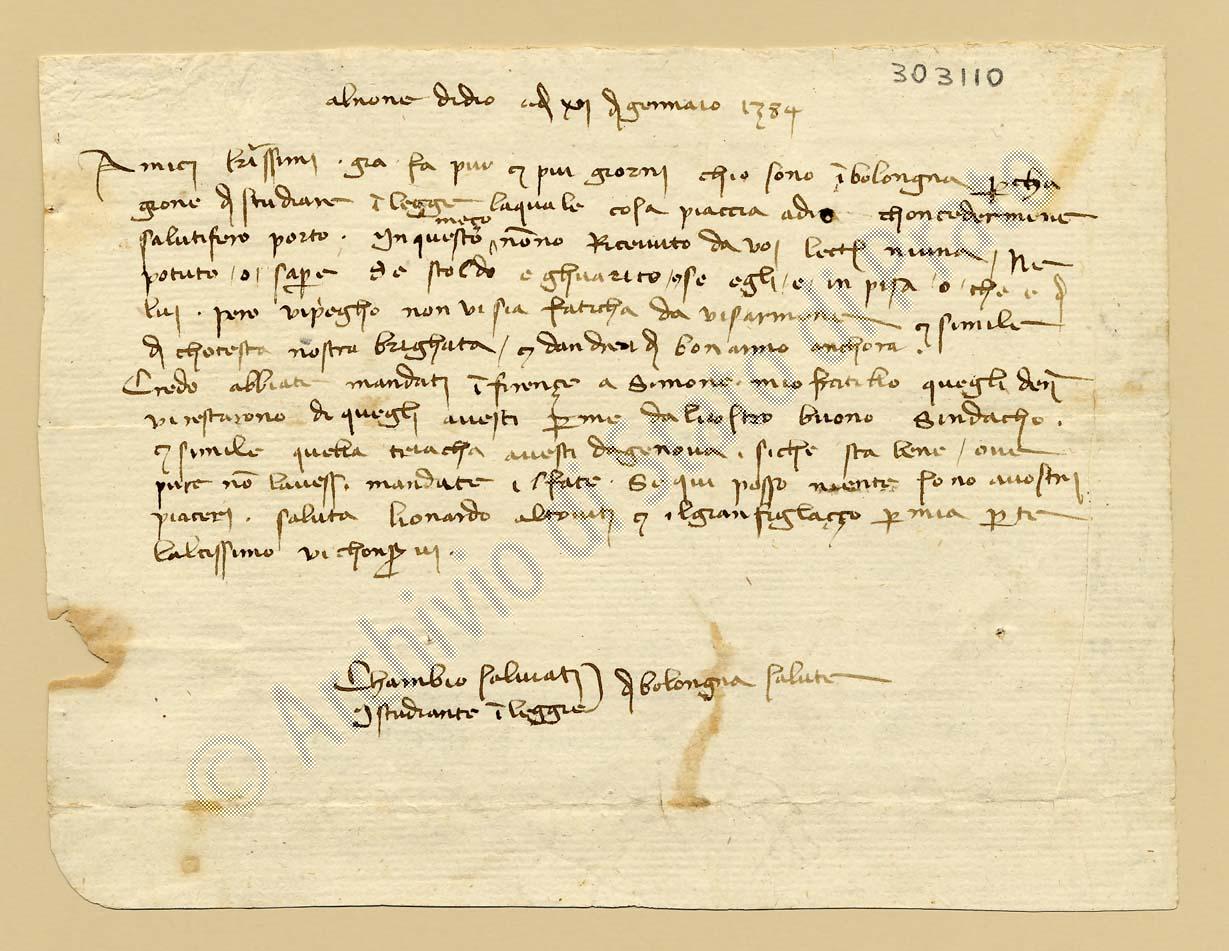 303110
al none didio adì xvi di gennaio 1384
Amici kr̃issimi. gia fa piu e piu giorni chio sono ĩ bologna per cha
gione di studiare ĩ leggie laquale cosa piaccia adio choncedermene
meço
salutifero porto. In questo nonno Ricevuto da voi lectˢ niuna, Ne
potuto, o, sapere de stoldo e ghuarico, ese egli, e, in pisa, o, che e di
lui. pero vi pregho non vi sia faticha da visarmene e simile
di chotesta nostra brighata, e dandrea di bonanno anchora.
Credo abbiate mandati ĩ firençe a Simone mio fratello quegli deñ
vi restarono di quegli avesti per me dal vostro buono Sindacho.
e simile quella avesti da genova. siche sta bene, ove
pure nõ lavessi. mandate i lfate. Se qui posso niente sono avostri
piaceri. saluta lionardo e ilgranfigliaçço per mia parte
laltissimo vi chonservi.
Chambio salviati di bologna salute
Istudiante ĩ leggie
© Archivio di Stato di Prato